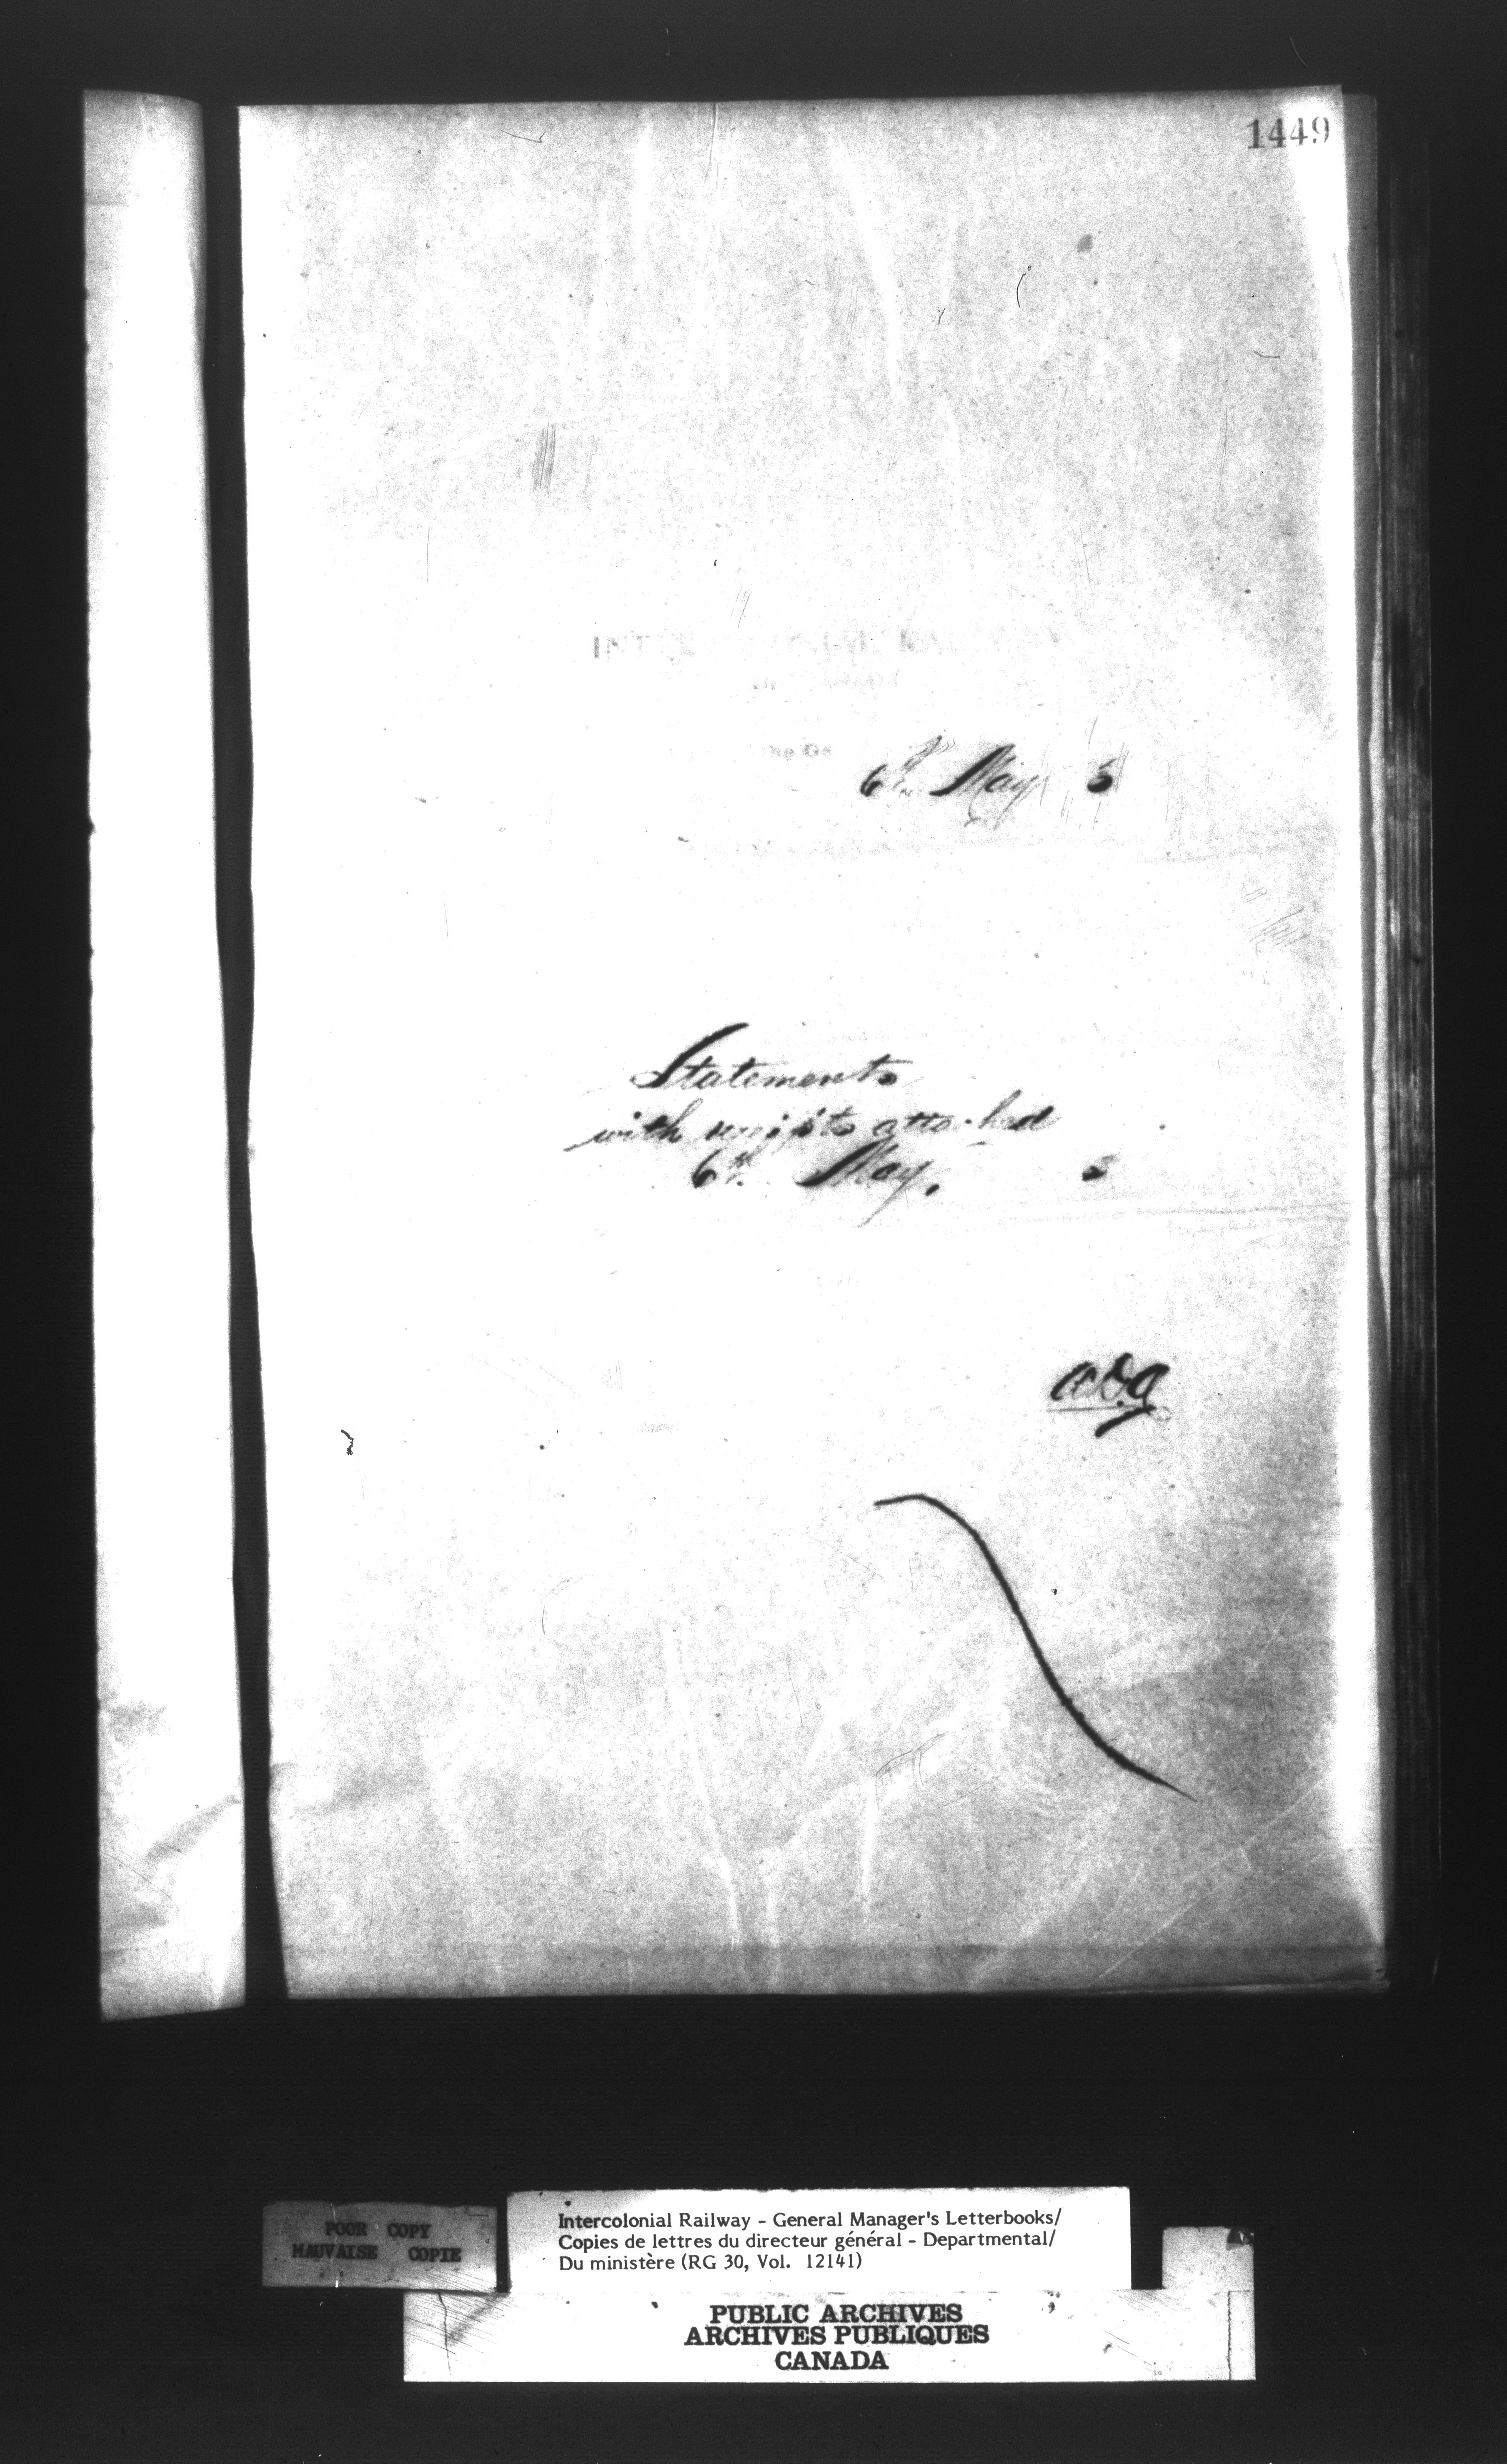 1449
6th May 5
Statements
with receipts attached
6th May, 5
POOR COPY
MAUVAISE COPIE
Intercolonial Railway - General Manager's Letterbooks/
Copies de lettres du directeur général - Departmental/
Du ministère (RG 30, Vol. 12141)
PUBLIC ARCHIVES
ARCHIVES PUBLIQUES
CANADA